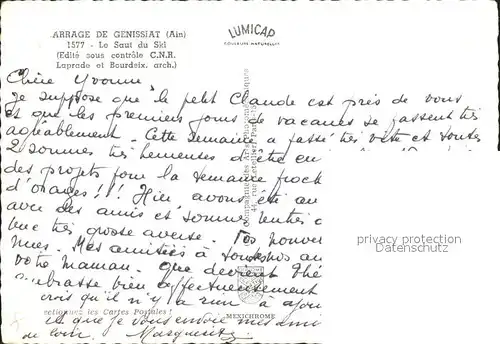 ARRAGE DE GENISSIAT (Ain)
1577 - Le Saut du Ski
(Edité sous contrôle C.N.R.
Laprade et Bourdeix. arch.)
LUMICAP
COULEURS NATURELLES
Chère Yvonne,
Je suppose que le petit Claude est près de vous
et que les premiers jours de vacances se passent très
agréablement. Cette semaine a passé très vite et toutes
2 sommes très heureuses d'être en
des projets pour la semaine proch
d'orages !!! Hier avons été au
avec des amis et sommes rentrés
une très grosse averse. Vos nouvel
nues. Mes amitiés à
votre maman. que devient
embrasse bien affectueusement
crois qu'il n'y a rien à ajou
et que je vous envoie mes ami
de loin. Marguerite
ectionnez les Cartes Postales !
MEXICHROME
privacy protection
© Akpool.de